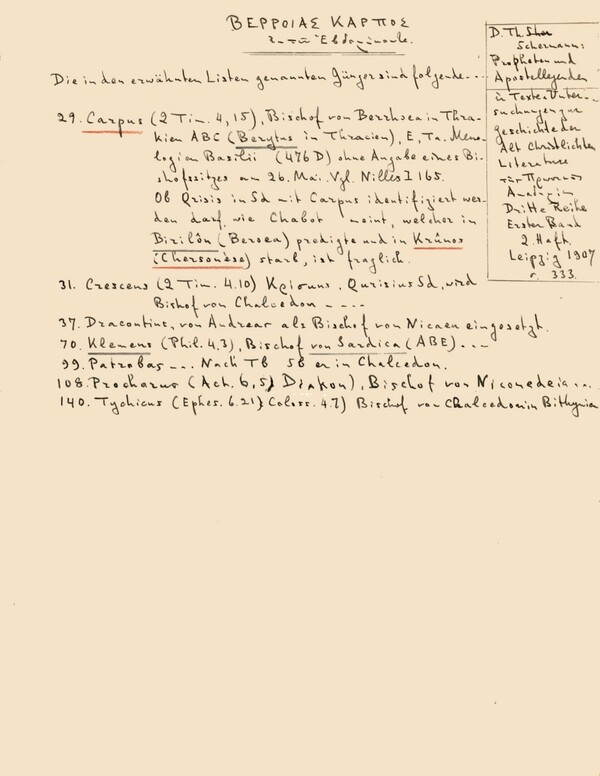 ΒΕΡΡΟΙΑΣ ΚΑΡΠΟΣ
Die in den erwähnten Listen genannten Jünger sind folgende....
29. Carpus (2 Tim. 4,15), Bischof von Berrhoea in Thra-
kien ABC (Berytus in Thracien), E, Ta. Meno-
logion Basilii (476 D) ohne Angabe eines Bi-
shofssitzes am 26. Mai. Vgl. Nilles I 165.
Ob Qrisis in Sd mit Carpus identifiziert wer-
den darf, wie Chabot meint, welcher in
Birilôn (Beroea) predigte und in Krûnos
(Chersonèse) starb, ist fraglich.
31. Crescens (2 Tim. 4.10) Qurisius Sd, wird
Bishof von Chalcedon - - - -
37. Dracontius, von Andreas als Bischof von Nicaea eingesetzt.
70. Klemens (Phil. 4.3), Bischof von Sardica (ABE) . - -
99. Patrobas - - . Nach Tb er in Chalcedon.
108. Prochorus (Act. 6,5) Diakon), Bischof von Nicomedeia...
140. Tychicus (Ephes. 6.21) Coloss. 4.7) Bischof von Chalcedon in Bithynien
D. Th. Scher
Schermann:
Propheten und
Apostellegenden
Texte u Unter-
suchungen zur
Geschichte der
Alt Christlichen
Literature
Dritte Reihe
Erster Band
2. Haft.
Leipzig 1907
σ. 333.